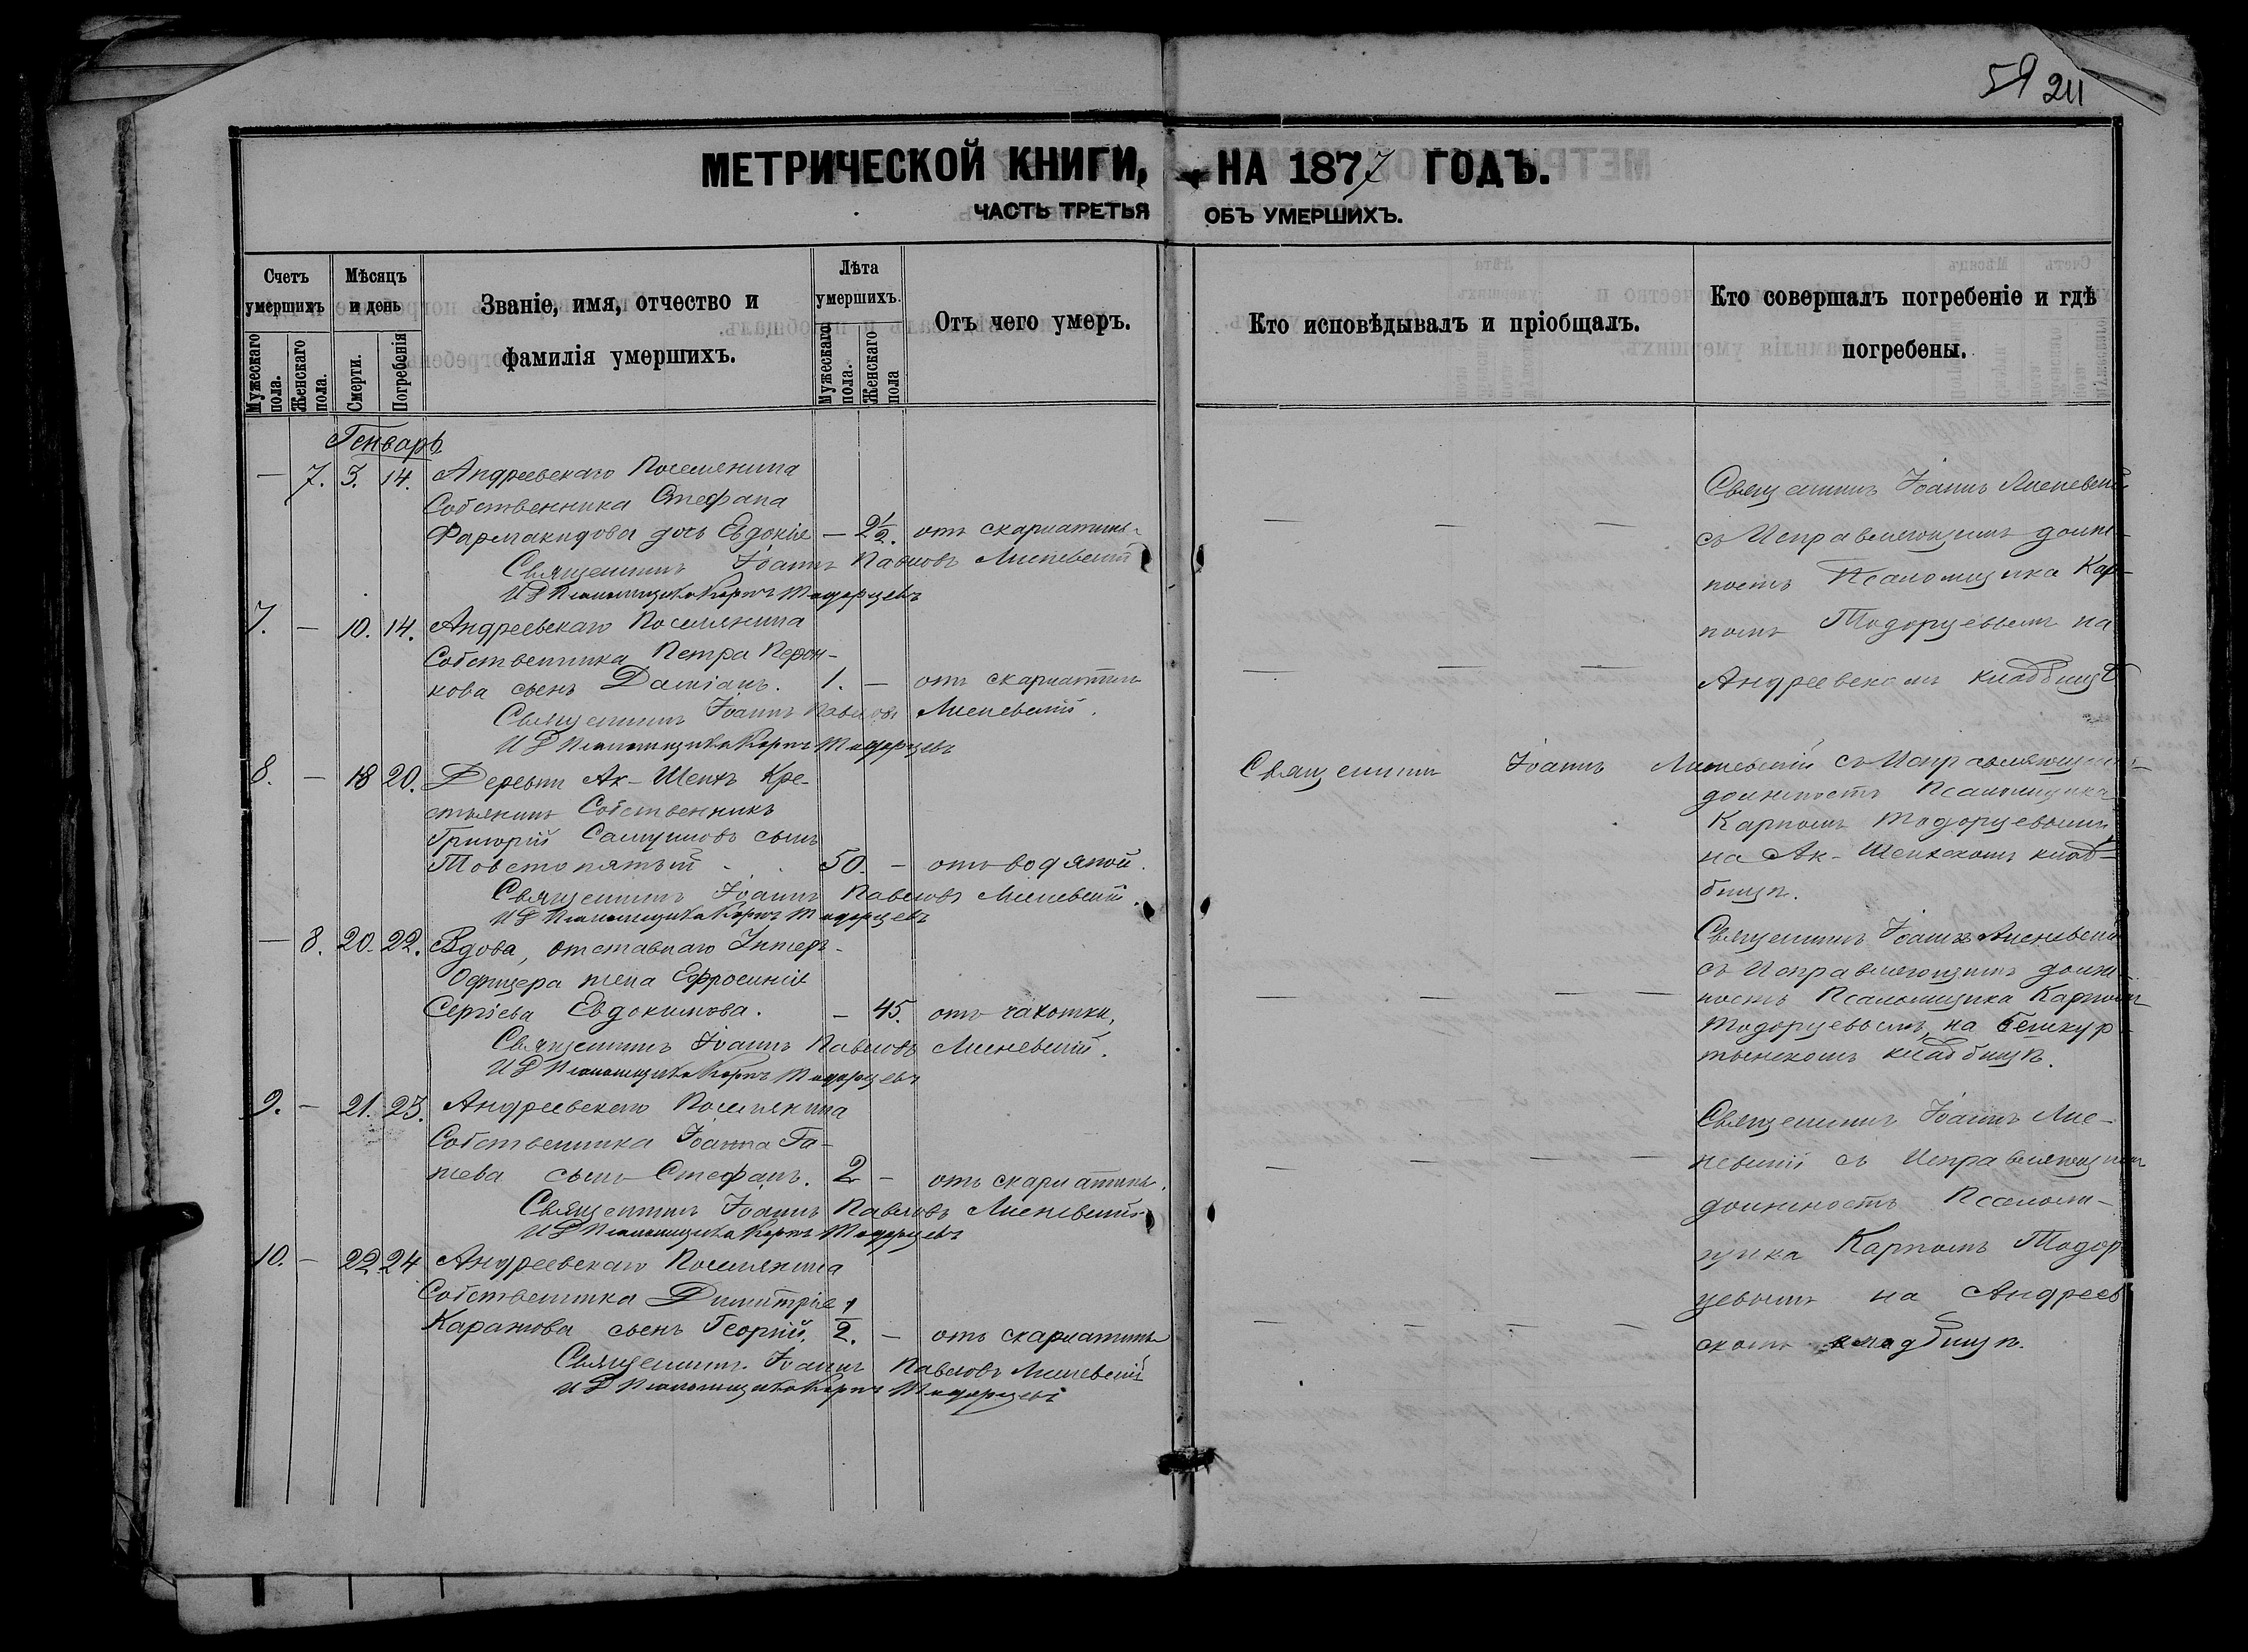 59 211
МЕТРИЧЕСКОЙ КНИГИ, НА 1877 ГОДЪ.
ЧАСТЬ ТРЕТЬЯ ОБЪ УМЕРШИХЪ.
Счетъ умершихъ
Мужескаго пола.
Женскаго пола.
Мѣсяцъ и день
Смерти.
Погребенія
Званіе, имя, отчество и
фамилія умершихъ.
Лѣта умершихъ.
Мужескаго пола.
Женскаго пола
Отъ чего умеръ.
Кто исповѣдывалъ и пріобщалъ.
Кто совершалъ погребеніе и гдѣ
погребены.
Генварь
— 7. 3. 14. Андреевскаго Поселянина
Собственника Стефана
Фармакидова дочь Евдокія — 2½. отъ скарлатины
Священникъ Іоаннъ Павловъ Лисневскій
И Д Псаломщика Карпъ Тодорцевъ
Священникъ Іоаннъ Лисневскій
съ Исправляющимъ долж-
ность Псаломщика Кар-
помъ Тодорцевымъ на
Андреевскомъ кладбищѣ
7. — 10. 14. Андреевскаго Поселянина
Собственника Петра Перон-
кова сынъ Даміанъ. 1. — отъ скарлатины
Священникъ Іоаннъ Павловъ Лисневскій.
И Д Псаломщика Карпъ Тодорцевъ
8. — 18 20. Деревни Ак-Шеихъ Кре-
стьянинъ Собственникъ
Григорій Самуиловъ сынъ
Товстопятый 50. — отъ водяной.
Священникъ Іоаннъ Павловъ Лисневскій.
И Д Псаломщика Карпъ Тодорцевъ
Священникъ Іоаннъ Лисневскій съ Исправляющимъ
должность Псаломщика
Карпомъ Тодорцевымъ
на Ак-Шеихскомъ клад-
бищѣ.
— 8. 20. 22. Вдова, отставнаго Унтеръ-
Офицера жена Ефросинія
Сергіева Евдокимова. — 45. отъ чахотки,
Священникъ Іоаннъ Павловъ Лисневскій.
И Д Псаломщика Карпъ Тодорцевъ
Священникъ Іоаннъ Лисневскій
съ Исправляющимъ долж-
ность Псаломщика Карпомъ
Тодорцевымъ, на Бешкур-
тынскомъ кладбищѣ.
9. — 21. 23. Андреевскаго Поселянина
Собственника Іоанна Га-
нева сынъ Стефанъ. 2 — отъ скарлатины.
Священникъ Іоаннъ Павловъ Лисневскій
И Д Псаломщика Карпъ Тодорцевъ
Священникъ Іоаннъ Лис-
невскій съ Исправляющимъ
должность Псалом-
щика Карпомъ Тодор
цевымъ на Андреев
скомъ кладбищѣ.
10. — 22 24 Андреевскаго Поселянина
Собственника Димитрія
Каранова сынъ Георгій. ½. — отъ скарлатины
Священникъ Іоаннъ Павловъ Лисневскій
И Д Псаломщика Карпъ Тодорцевъ